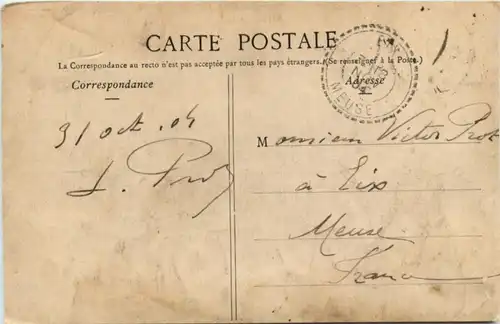 CARTE POSTALE
La Correspondance au recto n'est pas acceptée par tous les pays étrangers. (Se renseigner à la Poste.)
Correspondance
Adresse
MEUSE
31 oct. 04
Monsieur Victor
à Eix
Meuse
France